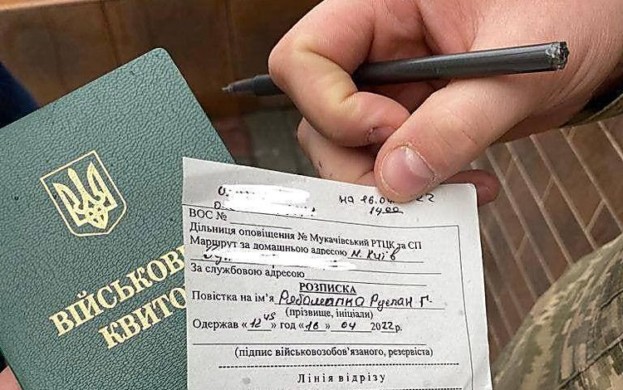 ВІЙСЬКОВ
КВИТО
НА 16.04 22
14.00
ВОС №
Дільниця оповіщення № Мукачівський РТЦК та СП
Маршрут за домашньою адресою м. Київ
За службовою адресою
РОЗПИСКА
Повістка на ім'я Рябошапка Руслан Г.
(прізвище, ініціали)
Одержав «12 45» год «16» 04 2022р.
(підпис військовозобов'язаного, резервіста)
Лінія відрізу